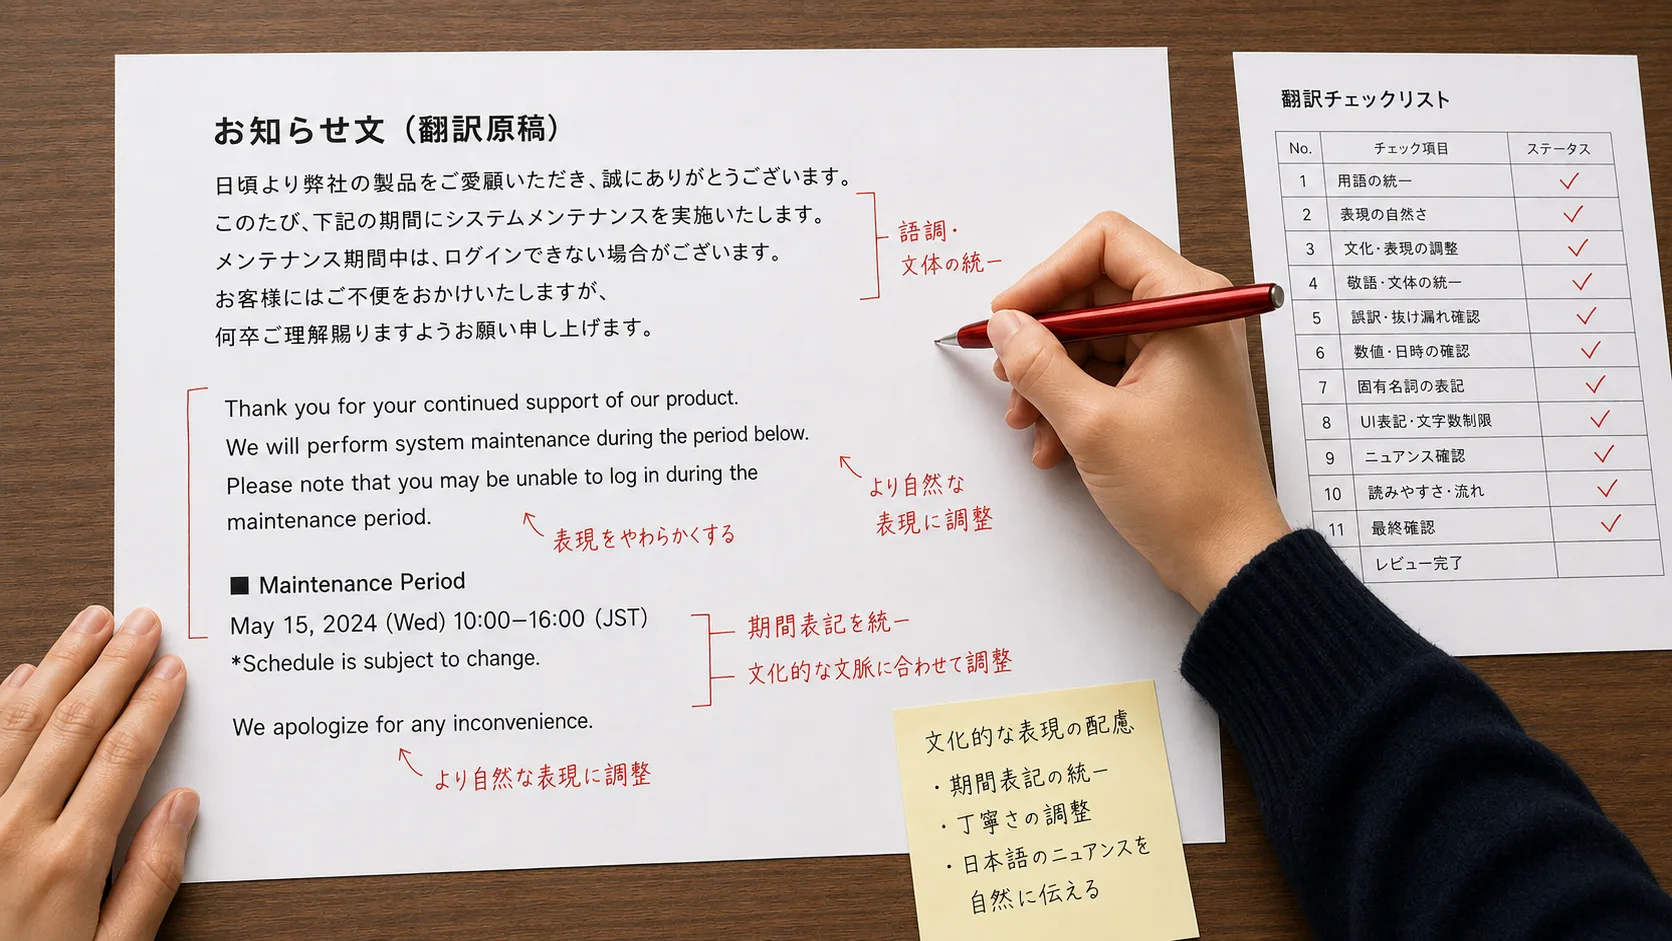 お知らせ文（翻訳原稿）
日頃より弊社の製品をご愛顧いただき、誠にありがとうございます。
このたび、下記の期間にシステムメンテナンスを実施いたします。
メンテナンス期間中は、ログインできない場合がございます。
お客様にはご不便をおかけいたしますが、
何卒ご理解賜りますようお願い申し上げます。
語調・
文体の統一
Thank you for your continued support of our product.
We will perform system maintenance during the period below.
Please note that you may be unable to log in during the
maintenance period.
より自然な
表現に調整
表現をやわらかくする
■ Maintenance Period
May 15, 2024 (Wed) 10:00–16:00 (JST)
*Schedule is subject to change.
期間表記を統一
文化的な文脈に合わせて調整
We apologize for any inconvenience.
より自然な表現に調整
文化的な表現の配慮
・期間表記の統一
・丁寧さの調整
・日本語のニュアンスを
自然に伝える
翻訳チェックリスト
No. チェック項目 ステータス
1 用語の統一 ✓
2 表現の自然さ ✓
3 文化・表現の調整 ✓
4 敬語・文体の統一 ✓
5 誤訳・抜け漏れ確認 ✓
6 数値・日時の確認 ✓
7 固有名詞の表記 ✓
8 UI表記・文字数制限 ✓
9 ニュアンス確認 ✓
10 読みやすさ・流れ ✓
11 最終確認 ✓
レビュー完了